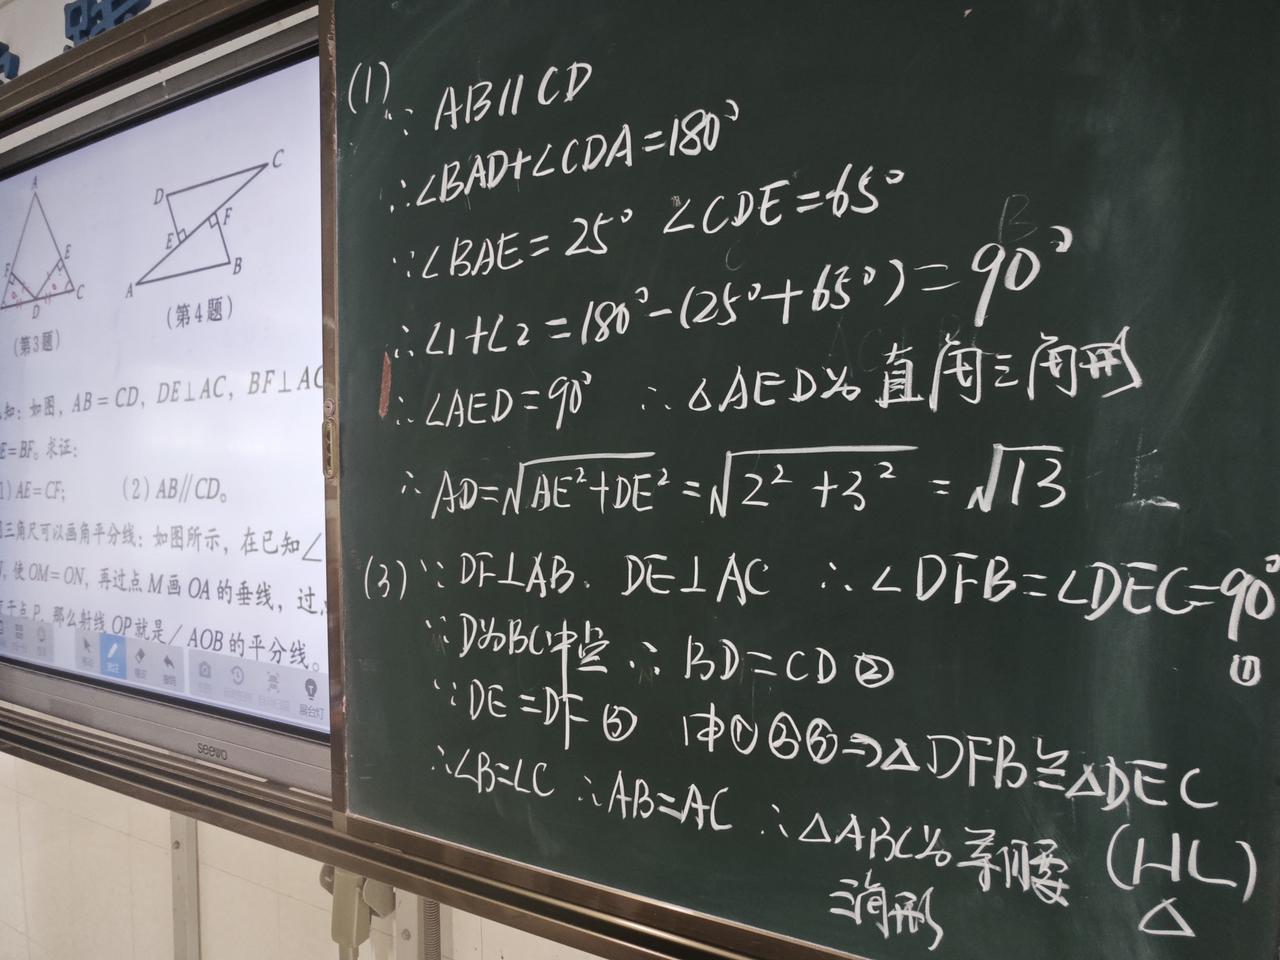 A
F
E
B
D
C
(第3题)
C
D
F
E
B
A
(第4题)
知：如图，AB＝CD，DE⊥AC，BF⊥AC
E＝BF。求证：
1）AE＝CF； （2）AB∥CD。
三角尺可以画角平分线：如图所示，在已知∠
，使OM＝ON，再过点M画OA的垂线，过
于点P，那么射线OP就是∠AOB的平分线。
展台灯
seewo
(1) ∵ AB∥CD
∴∠BAD+∠CDA=180°
∵∠BAE=25° ∠CDE=65°
∴∠1+∠2=180°-(25°+65°)=90°
∴∠AED=90° ∴△AED为直角三角形
∴AD=√AE²+DE²=√2²+3²=√13
(3) ∵DF⊥AB、DE⊥AC ∴∠DFB=∠DEC=90° ①
∵D为BC中点 ∴BD=CD②
∵DE=DF③ 由①②③⇒△DFB≌△DEC
(HL)
∴∠B=∠C ∴AB=AC ∴△ABC为等腰
三角形
△